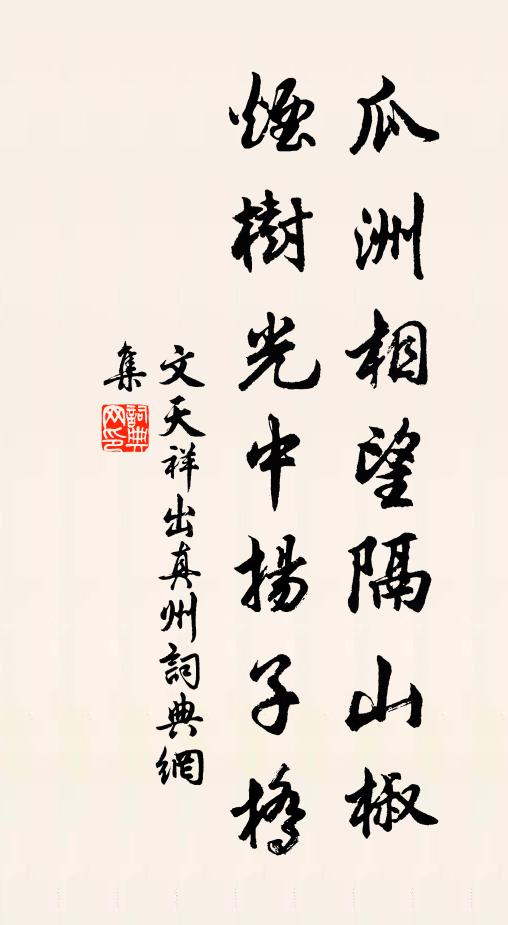 瓜洲相望隔山椒
煙樹光中揚子橋
文天祥出真州詞典網
集
詞典网印